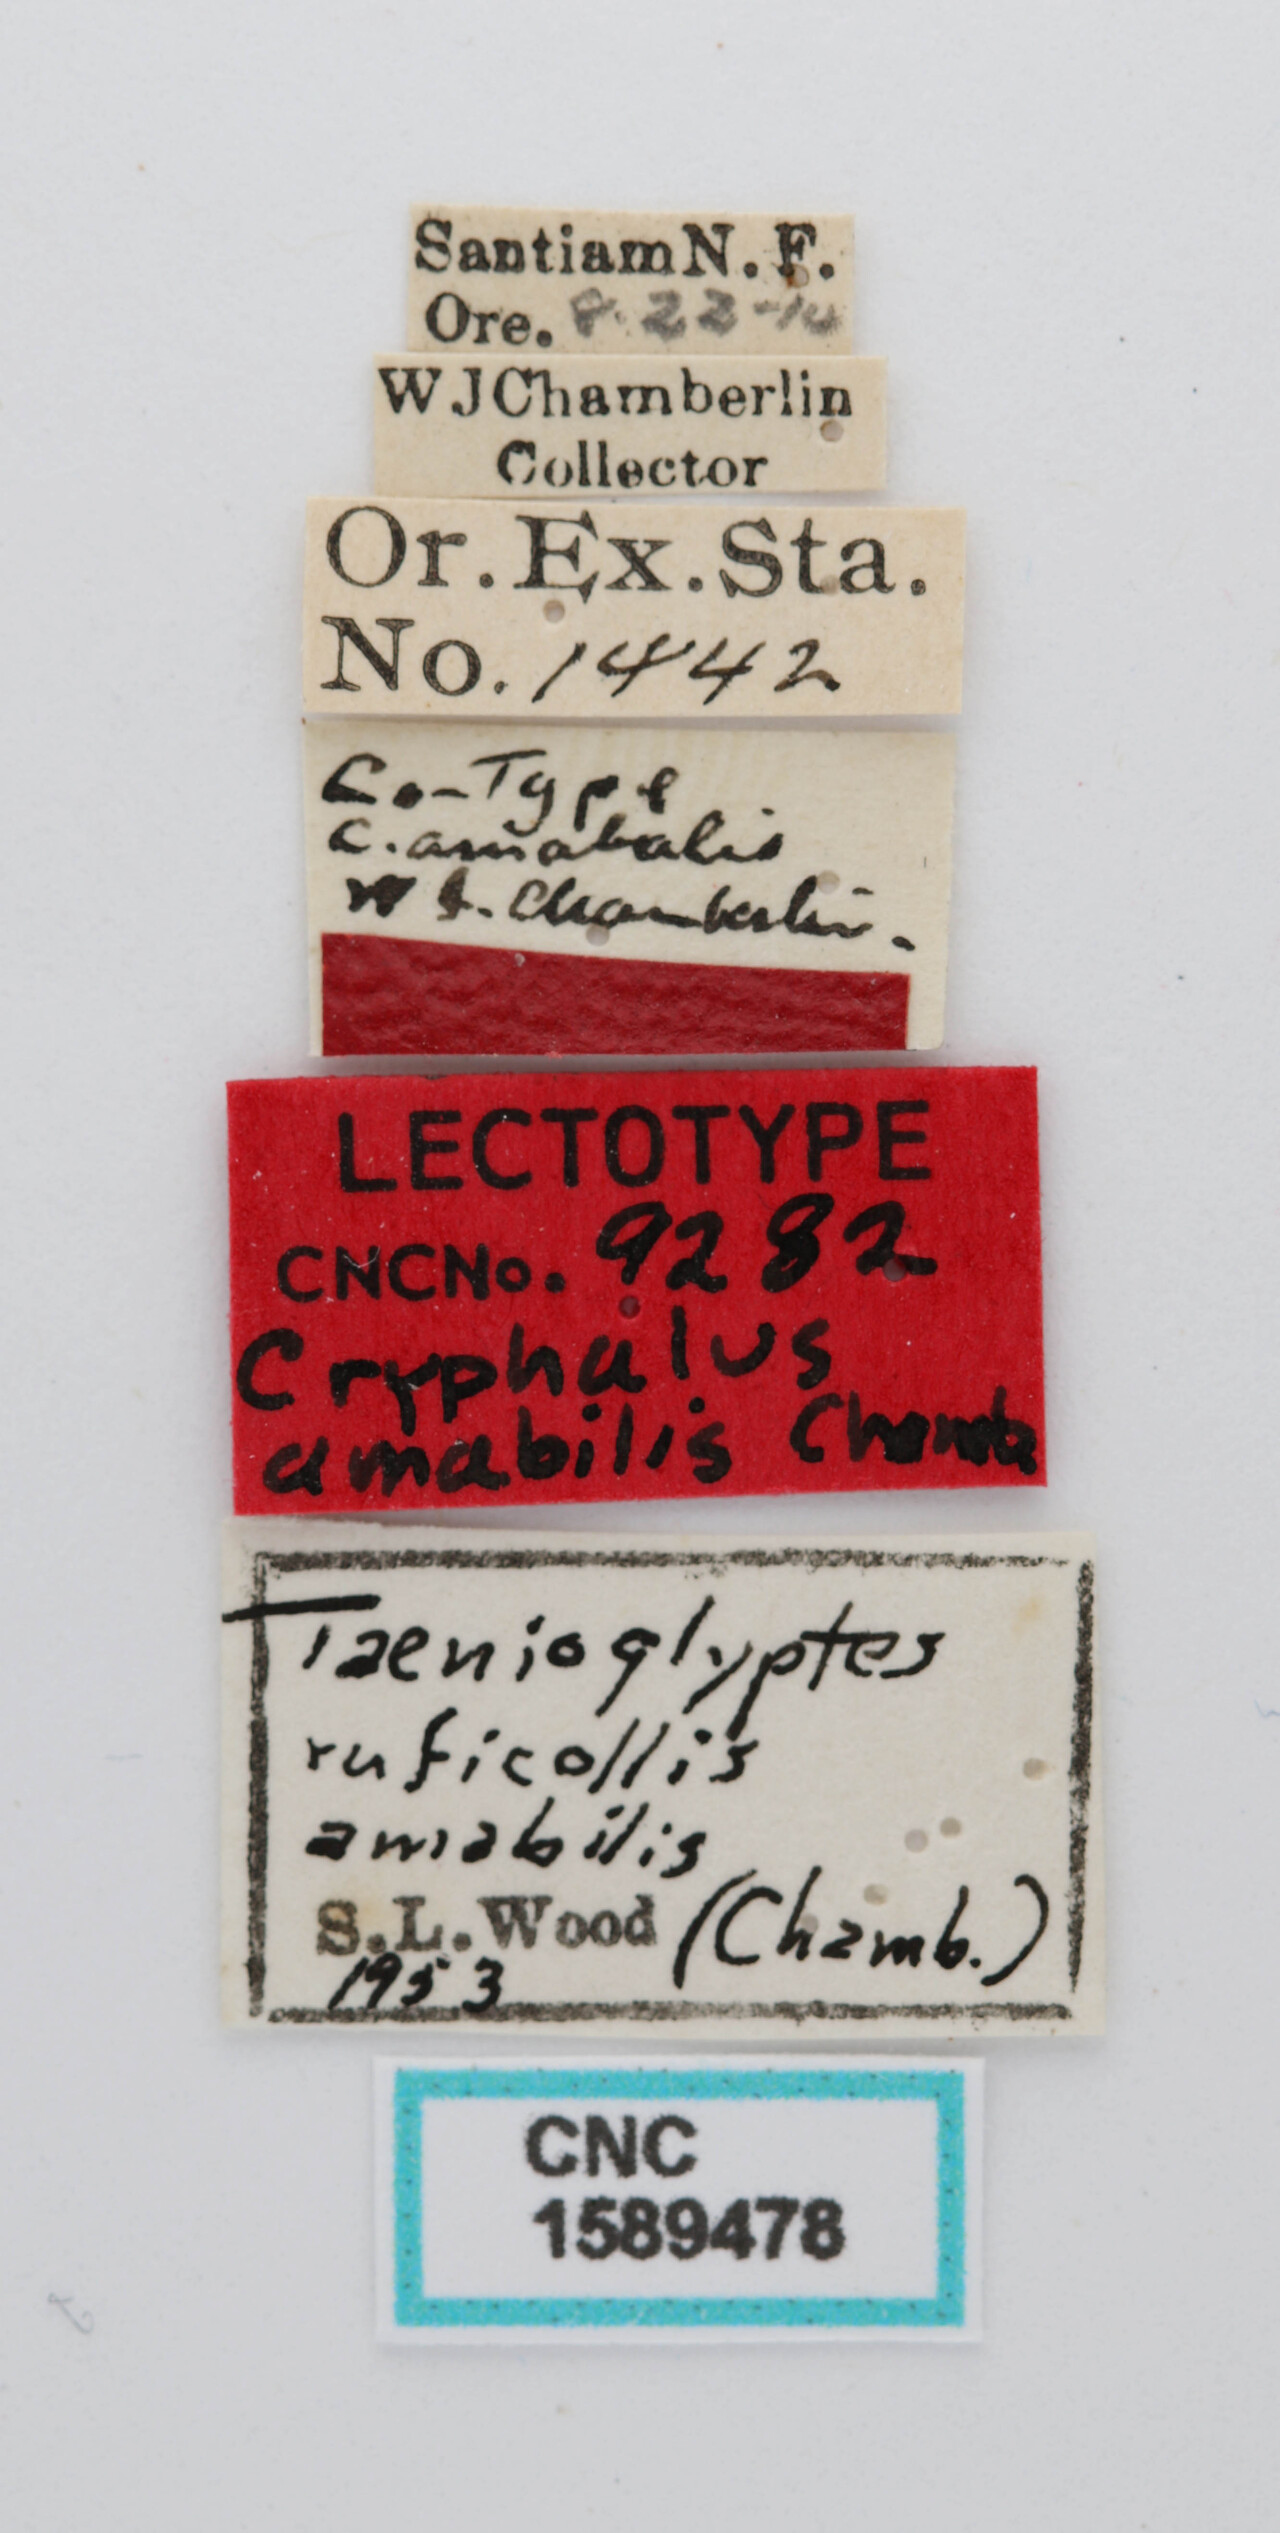 Santiam N. F.
Ore. 8-22-14
W J Chamberlin
Collector
Or. Ex. Sta.
No. 1442
Co-Type
C. amabalis
W J. Chamberlin.
LECTOTYPE
CNC No. 9282
Cryphalus
amabilis Chamb
Taenioglyptes
ruficollis
amabilis
S. L. Wood (Chamb.)
1953
CNC
1589478